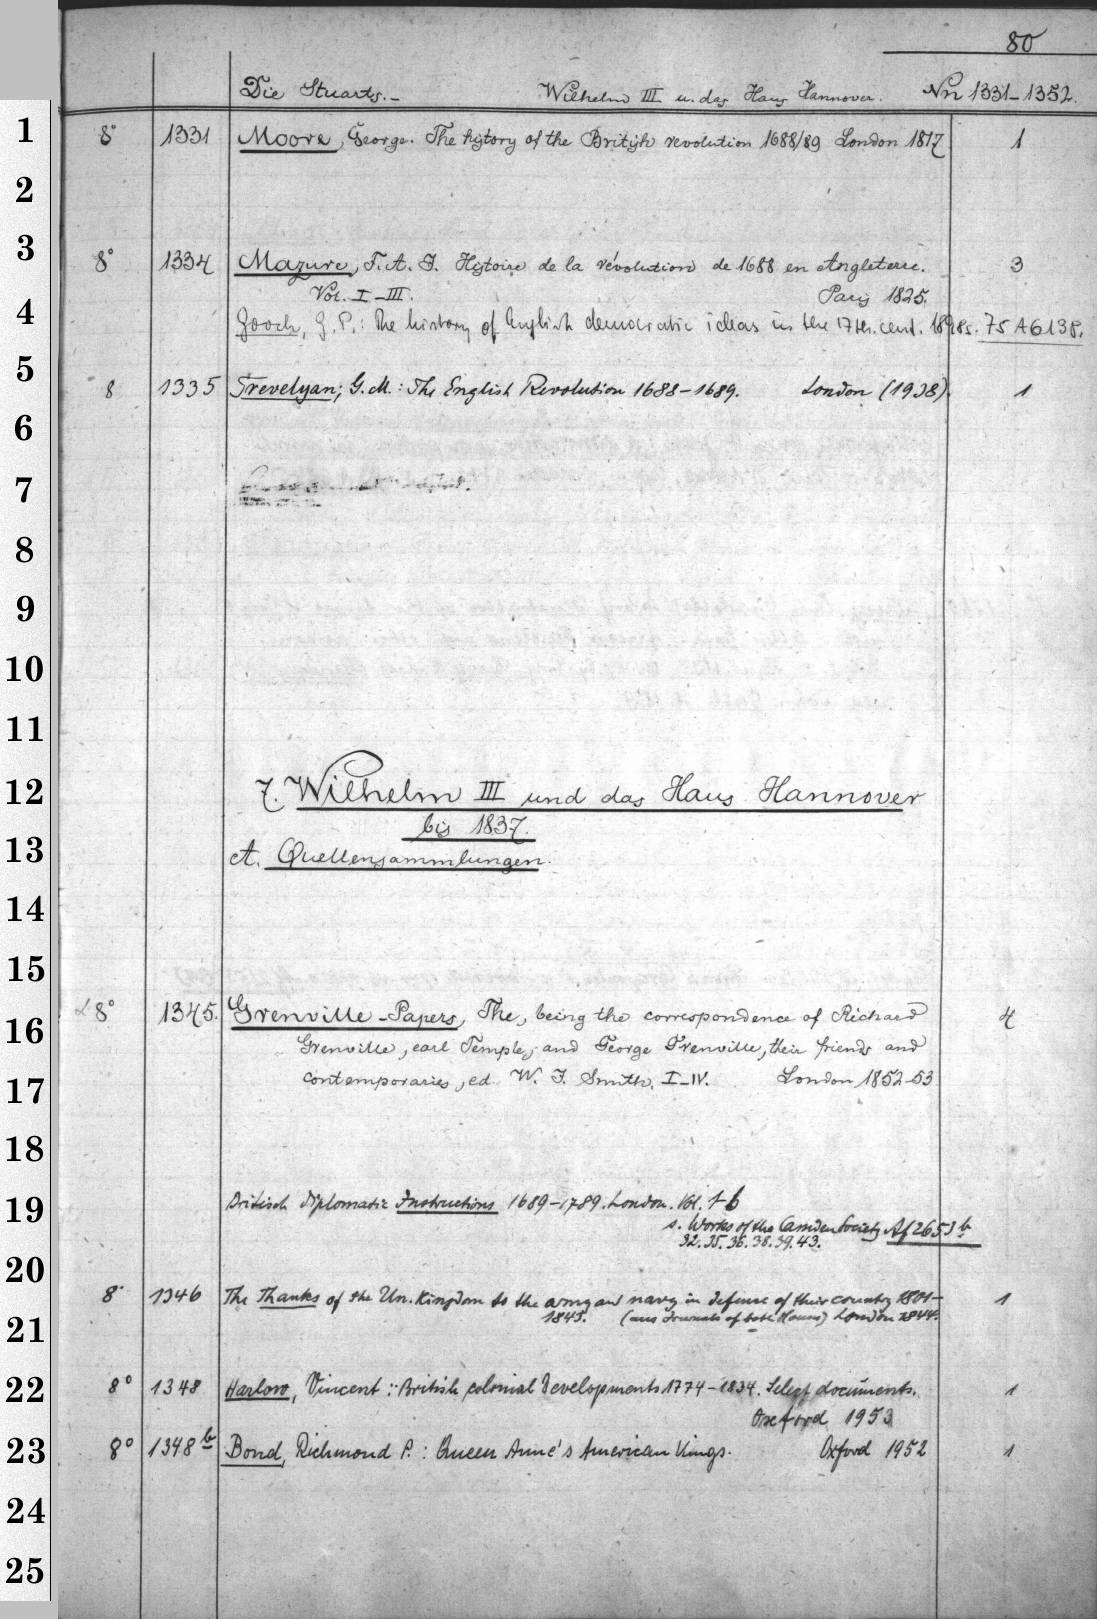 80
Die Stuarts.- Wilhelm III u. das Haus Hannover. Nn 1331-1352.
1 8° 1331 Moore, George. The history of the British revolution 1688/89 London 1817 1
2
3 8° 1334 Mazure, F. A. J. Histoire de la révolution de 1688 en Angleterre. 3
Vol. I-III. Paris 1825.
4 Gooch, G. P.: The history of English democratic ideas in the 17th. cent. 1898 s. 75 A 6138.
5 8 1335 Trevelyan; G. M.: The English Revolution 1688-1689. London (1938). 1
6
7
8
9
10
11
12 7. Wilhelm III und das Haus Hannover
bis 1837.
13 A. Quellensammlungen.
14
15
16 8° 1345. Grenville-Papers, The, being the correspondence of Richard 4
Grenville, earl Temple, and George Grenville, their friends and
17 contemporaries, ed. W. J. Smith. I-IV. London 1852-53
18
19 British Diplomatic Instructions 1689-1789. London. Vol. 1-6
s. Works of the Camden Society Af 2653 b
32. 35. 36. 38. 39. 43.
20
8° 1346 The Thanks of the Un. Kingdom to the army and navy in defense of their country 1801- 1
1843. (aus Journals of both Houses) London 1844.
21
22 8° 1348 Harlow, Vincent: British colonial Developments 1774-1834. Select documents. 1
Oxford 1953
23 8° 1348 b Bond, Richmond P.: Queen Anne's American Kings. Oxford 1952 1
24
25